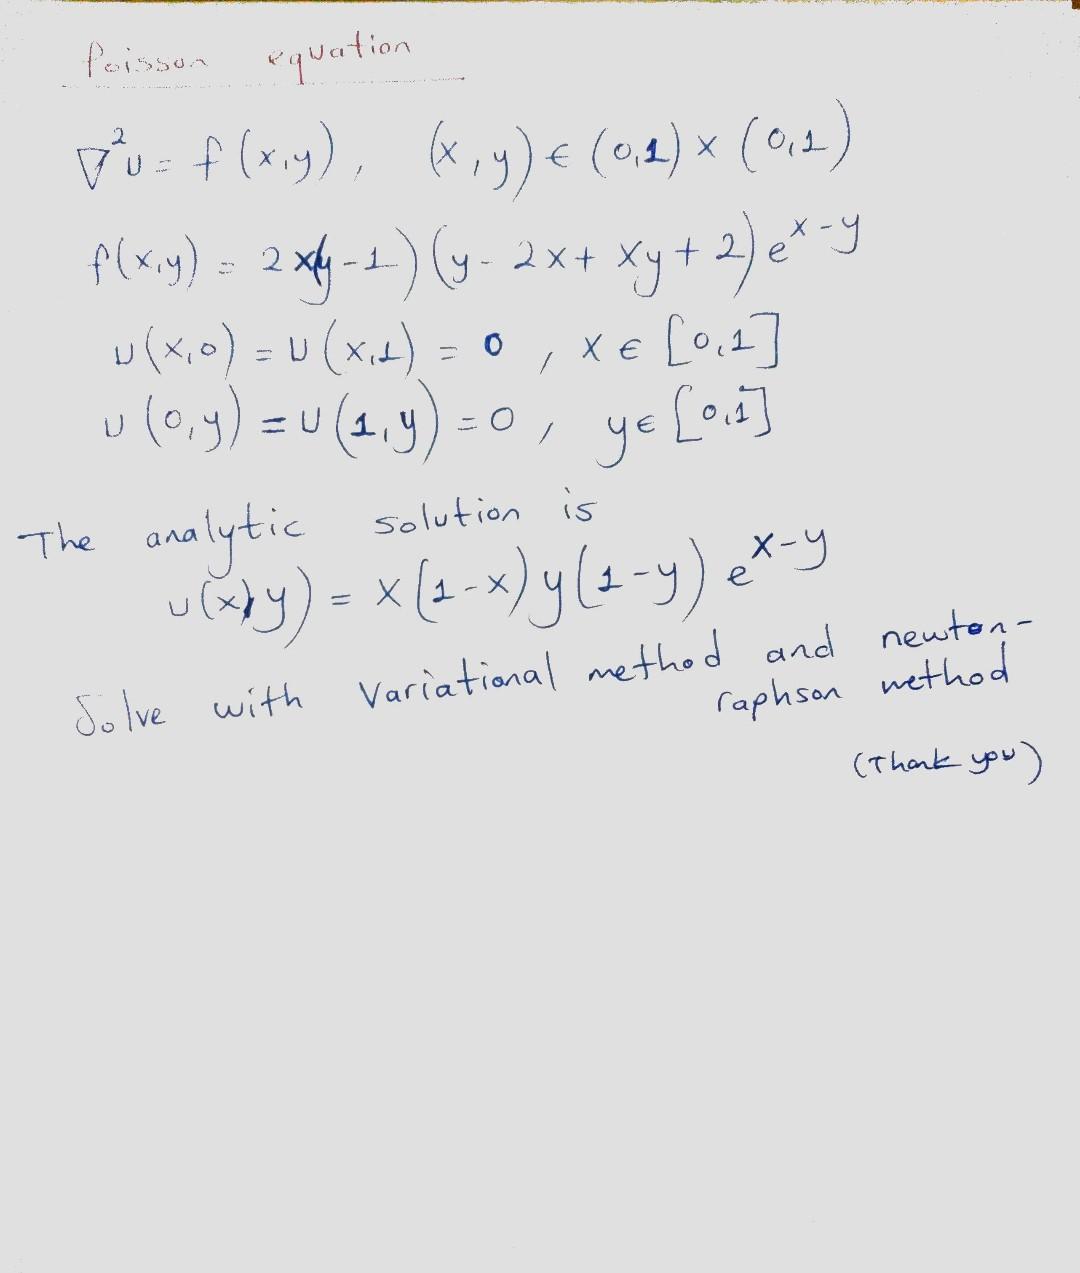 Poisson equation
∇²u = f(x,y), (x,y) ∈ (0,1) × (0,1)
f(x,y) = 2x(y-1)(y-2x+xy+2)e^x-y
u(x,0) = u(x,1) = 0, x ∈ [0,1]
u(0,y) = u(1,y) = 0, y ∈ [0,1]
The analytic solution is
u(x,y) = x(1-x)y(1-y)e^x-y
Solve with Variational method and newton-
raphson method
(Thank you)